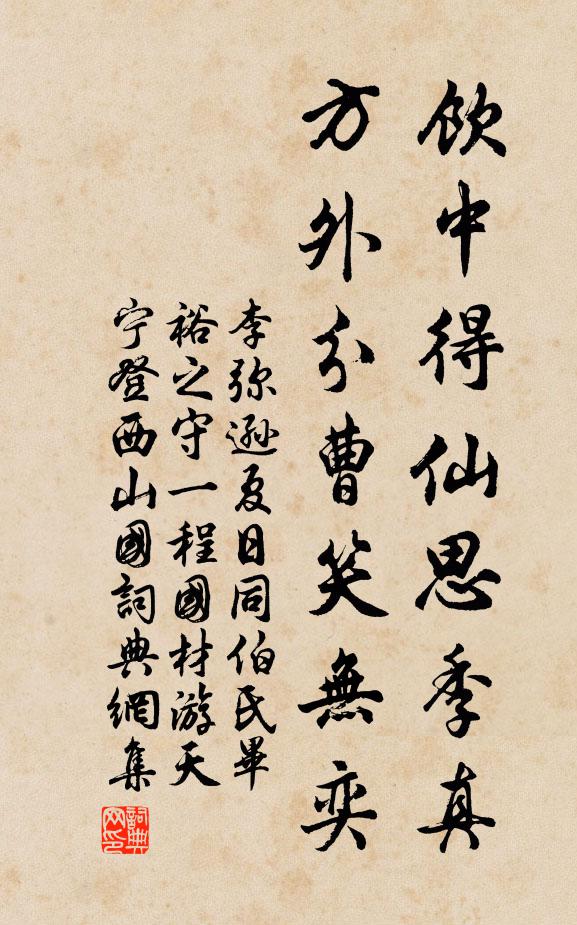 飲中得仙思季真
方外分曹笑無奕
李弥遜夏日同伯氏畢
裕之守一程國材游天
宁登西山國詞典網集
詞典网印